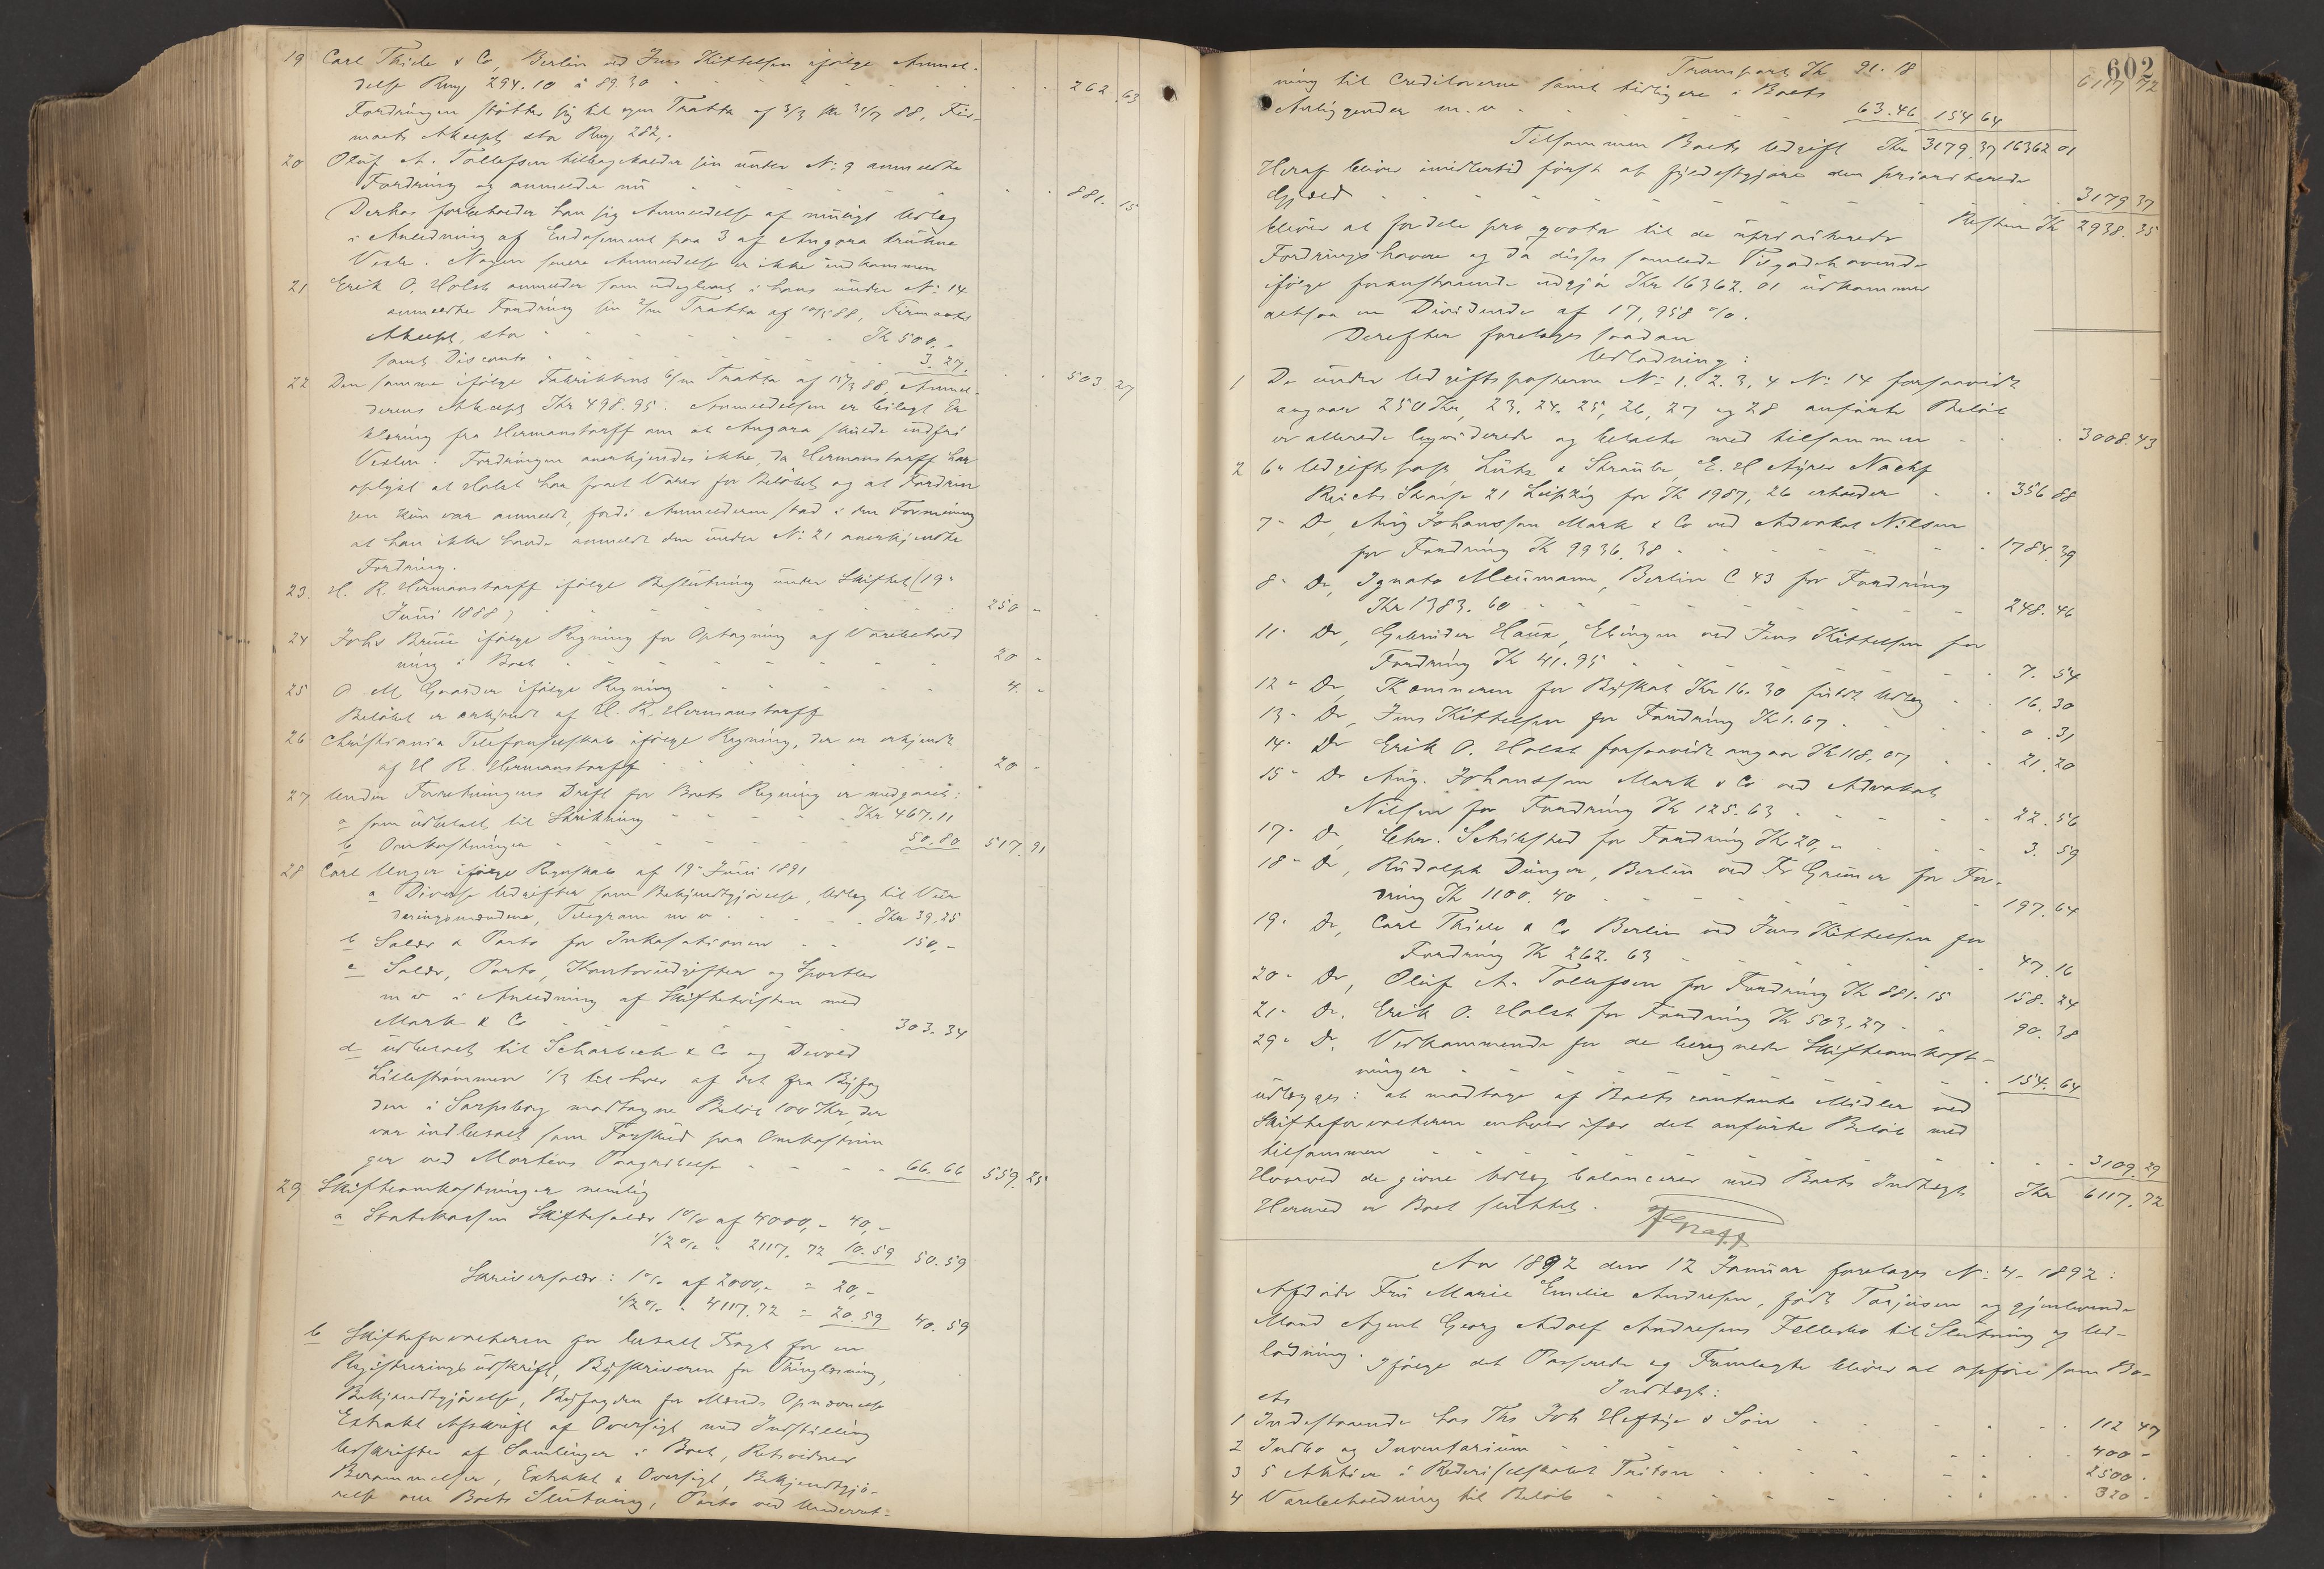 19 Carl Thiele & Co, Berlin ved Jens Kittelsen ifölge Anmel-
delse Rmg 294.10 à 89.30 - 262.63
Fordringen støtter sig til egen Tratta af 3/3 pr 31/7 88, Fir-
maets Akcept stor Rmg 282,.
20 Oluf A. Tollefsen tilbagekalder sin under No 9 anmeldte
Fordring og anmelder nu - 881.15
Derhos forbeholder han sig Anmeldelse af muligt Udlæg
i Anledning af Endosement paa 3 af Angora trukne
Vexler. Nogen senere Anmeldelse er ikke indkommen
21 Erik O. Holst anmelder som udeglemt i hans under No 14
anmeldte Fordring sin 2/m Tratta af 10/5 88, Firmaets
Akcept, stor - Kr 500,-
samt Disconto - 3.27. 503.27
22 Den samme ifölge Fabrikkens 6/m Tratta af 15/3 88, Anmel-
derens Akcept Kr 498.95. Anmeldelsen er bilagt Er
klæring fra Hermanstorff om at Angora skulde indfri
Vexlen. Fordringen anerkjendes ikke, da Hermanstorff har
oplyst at Holst har faaet Varer for Beløbet og at Fordrin
gen kun var anmeldt, fordi Anmelderen stod i den Formening
at han ikke havde anmeldt den under No 21 anerkjendte
Fordring.
23. H. R. Hermanstorff ifölge Beslutning under Skiftet (19-
Juni 1888) - 250 -
24 Johs Bruu ifölge Regning for Optagning af Varebehold
ning i Boet - 20 -
25 O. M. Gaarder ifölge Regning - 4. -
Beløbet er erkjendt af H. R. Hermanstorff
26 Christiania Telefonselskab ifölge Regning, der er erkjendt
af H R. Hermanstorff - 20 -
27 Under Forretningens Drift for Boets Regning er medgaaet:
a som udbetalt til Strikning - Kr 467.11
b Omkostninger - 50.80 517.91
28 Carl Unger ifölge Regnskab af 19- Juni 1891
a Diverse Udgifter som Bekjendtgjørelse, Udlæg til Vur
deringsmændene, Telegram m v - Kr 39.25
b Salær & Porto for Inkassationen - 150,-
c Salær, Porto, Kontorudgifter og Sportler
m v i Anledning af Skiftetvisten med
Mark & Co - 303.34
d udbetalt til Scharbeck & Co og
Lillestrømmen 1/3 til hver af det fra Byfog
den i Sarpsborg modtagne Beløb 100 Kr, der
var indbetalt som Forskud paa Omkostnin
ger ved Mortens Paagribelse - 66.66 559.25
29 Skifteomkostninger nemlig
a Statskassen Skiftesalær 1% af 4000,- 40,-
1/2 % " 2117.72 10.59 50.59
Skriversalær: 1% af 2000,- = 20,-
1/2 % " 4117.72 = 20.59 40.59
b Skifteforvalteren for betalt Fragt for en
Registreringsudskrift, Byskriveren for Thinglæsning,
Bekjendtgjørelse, Byfogden for Mænds Opnævnelse
Extrakt Afskrift af Oversigt med Indstilling
Udskrifter af Samlinger i Boet, Retsvidner
Berammelser, Extrakt & Oversigt, Bekjendtgjö-
relse om Boets Slutning, Porto ved Underret-
602
Transport Kr 91.18 6117 72
ning til Creditorerne samt tidligere i Boets
Anliggender m. v - 63.46 154 64
Tilsammen Boets Udgift Kr 3179.37 16362 01
Heraf bliver imidlertid först at fyldestgjöre den prioriterede
Gjæld - 3179 37
Resten Kr 2938.35
bliver at fordele pro qvota til de uprioriterede
Fordringshavere og da disses samlede Tilgodehavende
ifölge foranstaaende udgjör Kr 16362.01 udkommer
altsaa en Dividende af 17,958 %.
Derefter foretages saadan
Udlodning:
1 De under Udgiftsposterne No 1. 2. 3, 4 No 14 forsaavidt
angaar 250 Kr, 23. 24. 25, 26, 27 og 28 anförte Beløb
er allerede liqviderede og betalte med tilsammen - 3008.43
2 6te Udgiftspost Lutz & Straube, E. H Nachf
Reichs Strasse 21 Leipzig for Kr 1987,26 erholder - 356 88
7- Do, Aug Johansson Mark & Co ved Advokat Nilsen
for Fordring Kr 9936.38 - 1784.39
8- Do, Ignatz Neumann, Berlin C 43 for Fordring
Kr 1383.60 - 248.46
11- Do, Gebrüder Haux, Ebingen ved Jens Kittelsen for
Fordring Kr 41.95 - 7.54
12- Do Kæmneren for Byskat Kr 16.30 fuldt Udlæg - 16.30
13- Do, Jens Kittelsen for Fordring Kr 1.67 - 0.31
14- Do Erik O. Holst forsaavidt angaar Kr 118,07 - 21.20
15- Do Aug. Johansson Mark & Co ved Advokat
Nilsen for Fordring Kr 125.63 - 22.56
17- Do, Chr. Schibsted for Fordring Kr 20,- 3.59
18- Do, Rudolph Dünger, Berlin ved Fr Gruner for For-
dring Kr 1100.40 - 197.64
19- Do, Carl Thiele & Co Berlin ved Jens Kittelsen for
Fordring Kr 262.63 - 47.16
20- Do, Oluf A. Tollefsen for Fordring Kr 881.15 158.24
21- Do, Erik O. Holst for Fordring Kr 503.27 - 90.38
29- Do, Vedkommende for de beregnede Skifteomkost-
ninger - 154.64
udlægges: at modtage af Boets contante Midler ved
Skifteforvalteren enhver især det anförte Beløb med
tilsammen - 3109.29
Hvorved de givne Udlæg balancerer med Boets Indtægt Kr 6117.72
Hermed er Boet sluttet.
Aar 1892 den 12 Januar foretages No 4- 1892:
Afdöde Fru Marie Emilie Andresen, födt Torjusen og gjenlevende
Mand Agent Georg Adolf Andresens Fællesbo til Slutning og Ud-
lodning. Ifölge det Passerede og Fremlagte bliver at opföre som Bo-
ets Indtægt:
1 Indestaaende hos Ths Joh Heftye & Sön - 112 47
2 Indbo og Inventarium - 400 -
3 5 Aktier i Rederiselskabet Triton - 2500.
4 Varebeholdning til Beløb - 320 -